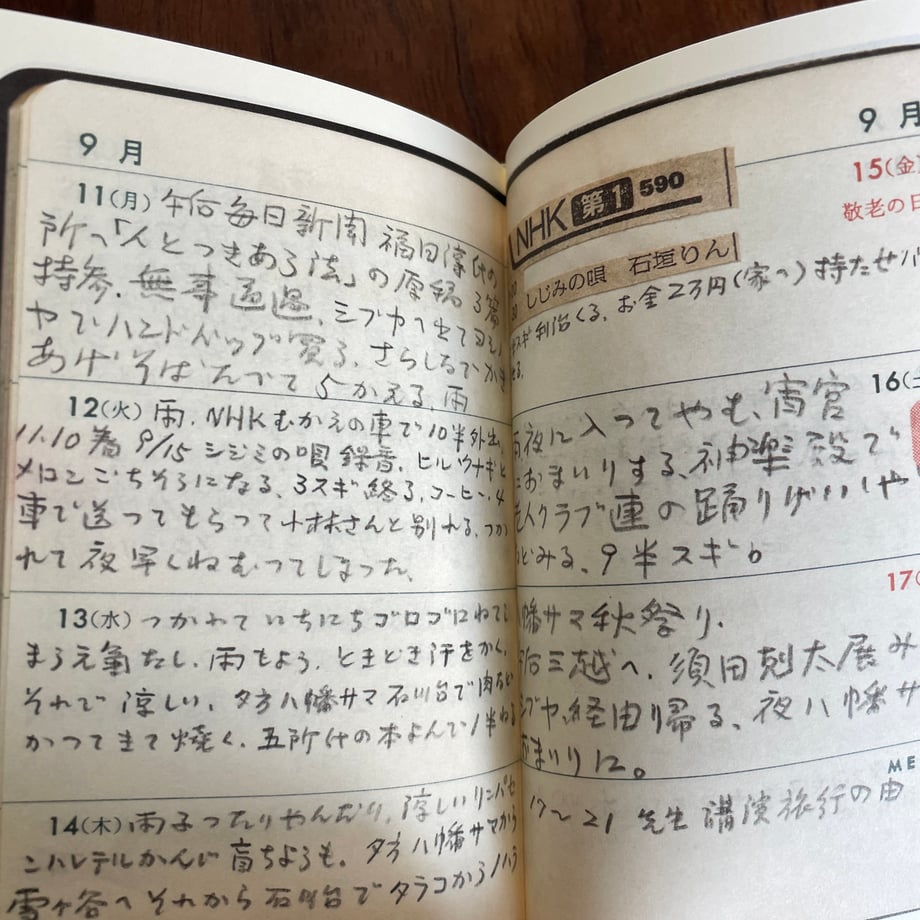 9月
11(月) 午后毎日新聞 福田淳氏の
所へ「人とつきあう法」の原稿
持参、無事通過、シブヤへ出て
やでハンドバッグ買う、さらしなでかき
あげそばたべて かえる、雨
12(火) 雨、NHKむかえの車で10半外出、
11.10着 9/15 シジミの唄 録音、ヒルウナギと
メロンごちそうになる、3スギ終る、コーヒー、4
車で送ってもらって 小林さんと別れる、つか
れて夜早くねむってしまった、
13(水) つかれていちにちゴロゴロねてし
まう元氣なし、雨もよう、ときどき汗をかく、
それで涼しい、夕方八幡サマ 石川台で肉
かってきて焼く、五所氏の本よんで1半ねる
14(木) 雨ふったりやんだり、涼しいリンパセ
ンハレテルかんじ 夕方八幡サマから
雪ヶ谷へそれから石川台でタラコ
9月
15(金)
敬老の日
NHK 第1 590
しじみの唄 石垣りん
スギ利治くる、お金2万円(家へ)持たせ
せる、
16
雨夜に入ってやむ、宵宮
におまいりする、神楽殿で
老人クラブ連の踊り
などみる、9半スギ。
17
八幡サマ秋祭り、
午后三越へ、須田剋太展み
シブヤ経由帰る、夜八幡サ
おまいりに。
ME
17〜21 先生講演旅行の由